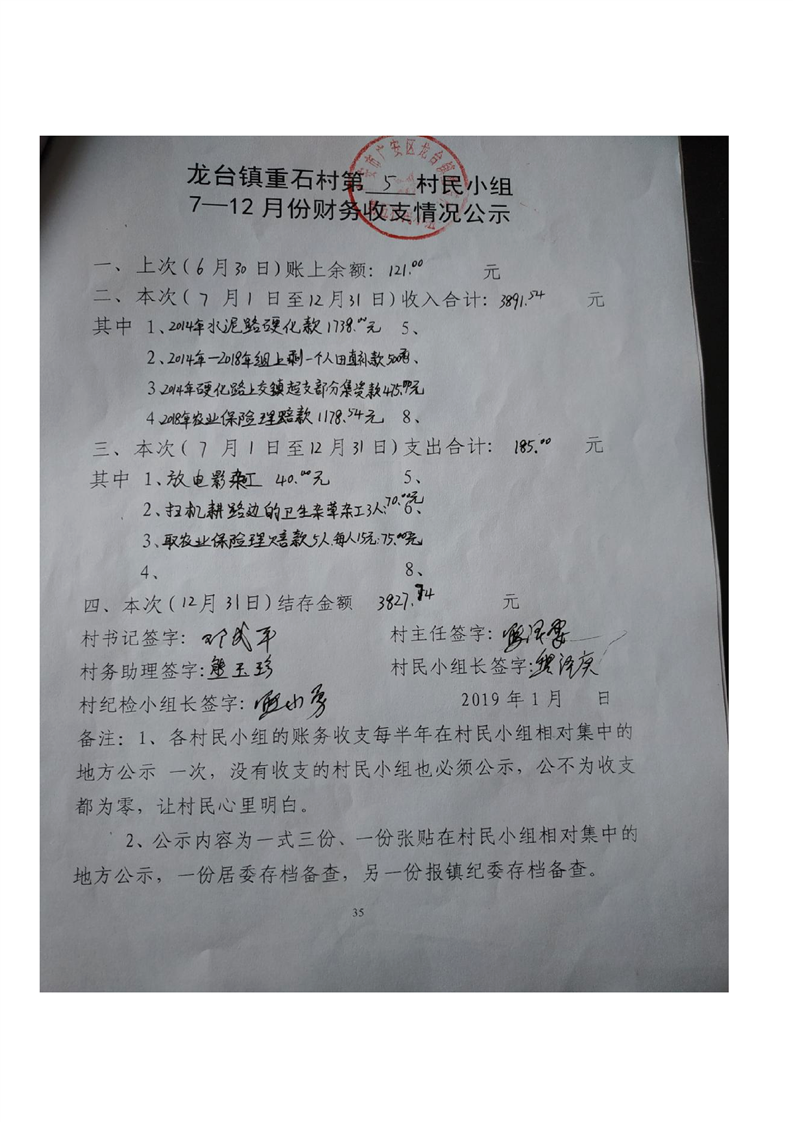 安市广安区龙台镇
龙台镇重石村第 5 村民小组
7—12月份财务收支情况公示
一、上次(6月30日)账上余额:121.00 元
二、本次(7月1日至12月31日)收入合计:3891.54 元
其中 1、2014年水泥路硬化款1738.00元 5、
2、2014年—2018年组上剩一个人田直补款500元、
3 2014年硬化路上交镇超支部分集资款475.00元
4 2018年农业保险理赔款1178.54元 8、
三、本次(7月1日至12月31日)支出合计:185.00 元
其中 1、放电影杂工 40.00元 5、
2、扫机耕路边的卫生杂草杂工3人:70.00元 6、
3、取农业保险理赔款5人每人15元:75.00元
4、 8、
四、本次(12月31日)结存金额 3827.54 元
村书记签字: 村主任签字:
村务助理签字:熊玉珍 村民小组长签字:
村纪检小组长签字: 2019年1月 日
备注:1、各村民小组的账务收支每半年在村民小组相对集中的
地方公示 一次,没有收支的村民小组也必须公示,公不为收支
都为零,让村民心里明白。
2、公示内容为一式三份、一份张贴在村民小组相对集中的
地方公示,一份居委存档备查,另一份报镇纪委存档备查。
35